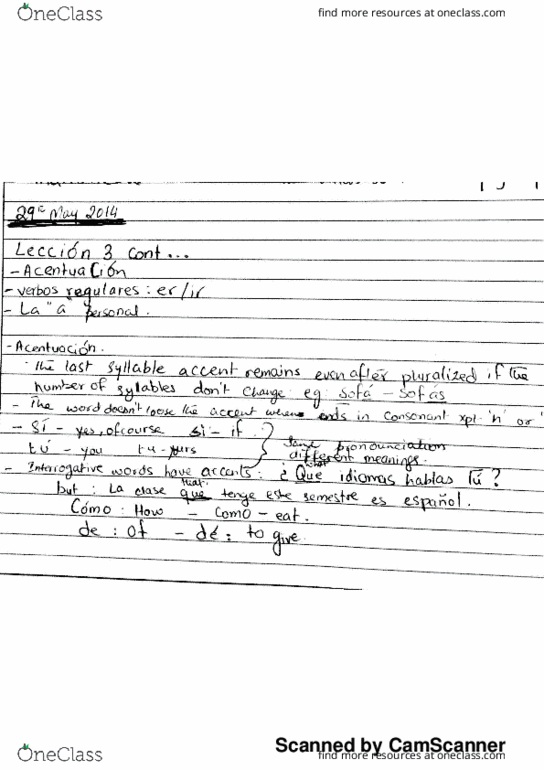 OneClass
find more resources at oneclass.com
29 May 2014
Lección 3 cont...
- Acentuación
- verbos regulares : er/ir
- La "a" personal.
- Acentuación.
The last syllable accent remains even after pluralized if the
number of sylables don't change eg sofá - sofás
- The word doesn't loose the accent when ends in consonant xpt 'n' or '
- Sí - yes, ofcourse si - if
same pronounciation
tú - you tu - yours
different meanings.
- Interrogative words have accents : ¿ Que idiomas hablas Tú ?
that
but : La clase que tenge este semestre es español.
Cómo : How - Como - eat.
de : Of - dé : to give
Scanned by CamScanner
OneClass
find more resources at oneclass.com